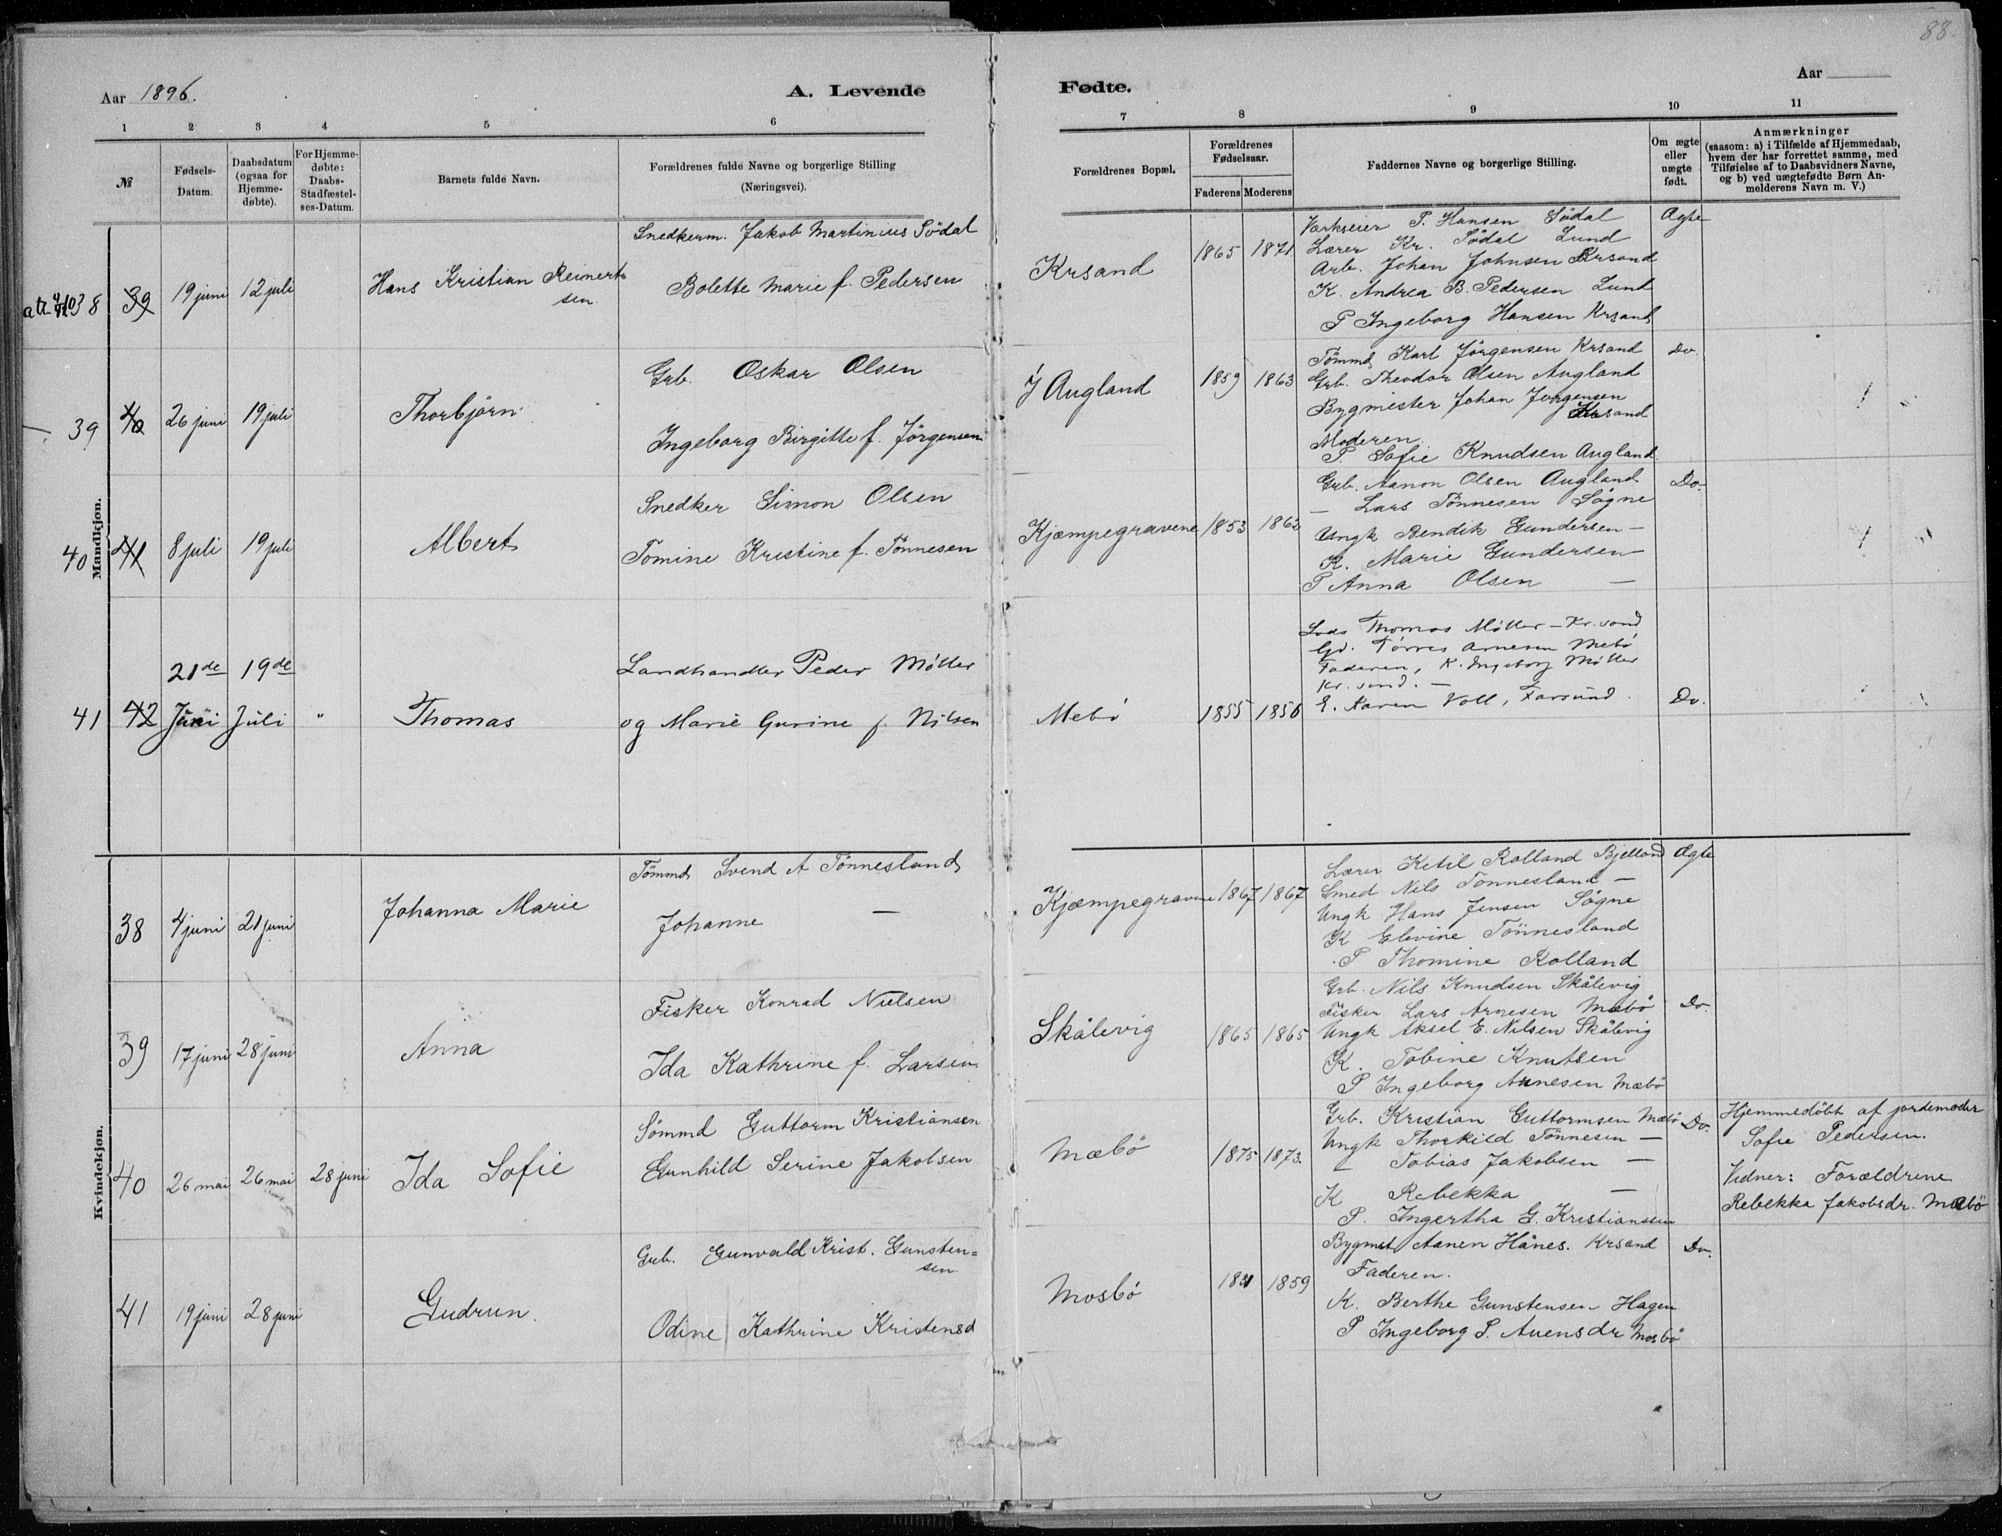 88.
Aar 1896.
A. Levende
Fødte.
Aar
1
2
3
4
5
6
7
8
9
10
11
№
Fødsels-
Datum.
Daabsdatum
(ogsaa for
Hjemme-
døbte).
For Hjemme-
døbte:
Daabs-
Stadfæstel-
ses-Datum.
Barnets fulde Navn.
Forældrenes fulde Navne og borgerlige Stilling
(Næringsvei).
Forældrenes Bopæl.
Forældrenes
Fødselsaar.
Faderens
Moderens
Faddernes Navne og borgerlige Stilling.
Om ægte
eller
uægte
født.
Anmærkninger
(saasom: a) i Tilfælde af Hjemmedaab,
hvem der har forrettet samme, med
Tilføielse af to Daabsvidners Navne,
og b) ved uægtefødte Børn An-
melderens Navn m. V.)
Mandkjøn.
38 39 19 juni 12 juli
Hans Kristian Reinert
sen.
Snedkerm. Jakob Martinius Södal
Bolette Marie f. Pedersen
Krsand
1865 1871
Værkseier T. Hansen Södal
Lærer Kr. Södal Lund
Arb. Johan Johnsen Krsand
K. Andrea B. Pedersen Lund
P Ingeborg Hansen Krsand
Ægte
39 40 26 juni 19 juli
Thorbjörn
Grb. Oskar Olsen
Ingeborg Birgitte f. Jörgensen
Y Augland
1859 1863
Tömmd Karl Jörgensen Krsand
Grb. Theodor Olsen Augland
Bygmester Johan Jörgensen
Krsand
Moderen.
P. Sofie Knudsen Augland
Do.
40 41 8 juli 19 juli
Albert
Snedker Simon Olsen
Tomine Kristine f. Tönnesen
Kjæmpegravene
1853 1862
Grb. Aanon Olsen Augland.
— Lars Tönnesen Sögne
Ungk Bendik Gundersen —
K. Marie Gundersen —
P Anna Olsen —
Do.
41 42 21de Juni 19de Juli "
Thomas
Landhandler Peder Møller
og Marie Gurine f. Nilsen
Mebø
1855 1856
Lods Thomas Møller — Kr.sand
Gd. Tørres Arnesen Mebø
Faderen, K. Ingeborg Møller
Kr.sand. —
E. Karen Voll, Farsund.
Do.
Kvindekjøn.
38 4 juni 21 juni
Johanna Marie
Tömmd Svend A Tönnesland
Johanne —
Kjæmpegravene
1867 1867
Lærer Ketil Rolland Bjelland
Smed Nils Tönnesland —
Ungk Hans Jensen Sögne
K Elevine Tönnesland
P Thomine Rolland
Ægte
39 17 juni 28 juni
Anna
Fisker Konrad Nielsen
Ida Kathrine f. Larsen
Skålevig
1865 1865
Grb. Nils Knudsen Skålevig
Fisker Lars Arnesen Mæbø
Ungk Aksel E. Nilsen Skålevig
K. Tobine Knutsen
P Ingeborg Arnesen Mæbø
Do.
40 26 mai 26 mai 28 juni
Ida Sofie
Sömmd Guttorm Kristiansen
Gunhild Serine Jakobsen
Mæbö
1875 1873.
Grb. Kristian Guttormsen Mæbø
Ungk Thorkild Tönnesen —
— Tobias Jakobsen —
K Rebekka —
P. Ingertha G. Kristiansen
Do.
Hjemmedöbt af jordemoder
Sofie Pedersen.
Vidner: Forældrene
Rebekka Jakobsdr. Mæbö
41 19 juni 28 juni
Gudrun.
Grb. Gunvald Krist. Gunsten=
sen.
Odine Kathrine Kristensd
Mosbö
1859
Bygmst Aanen Hånes. Krsand
Faderen.
K. Berthe Gunstensen Hagen
P Ingeborg S. Auensdr Mosbö
Do.